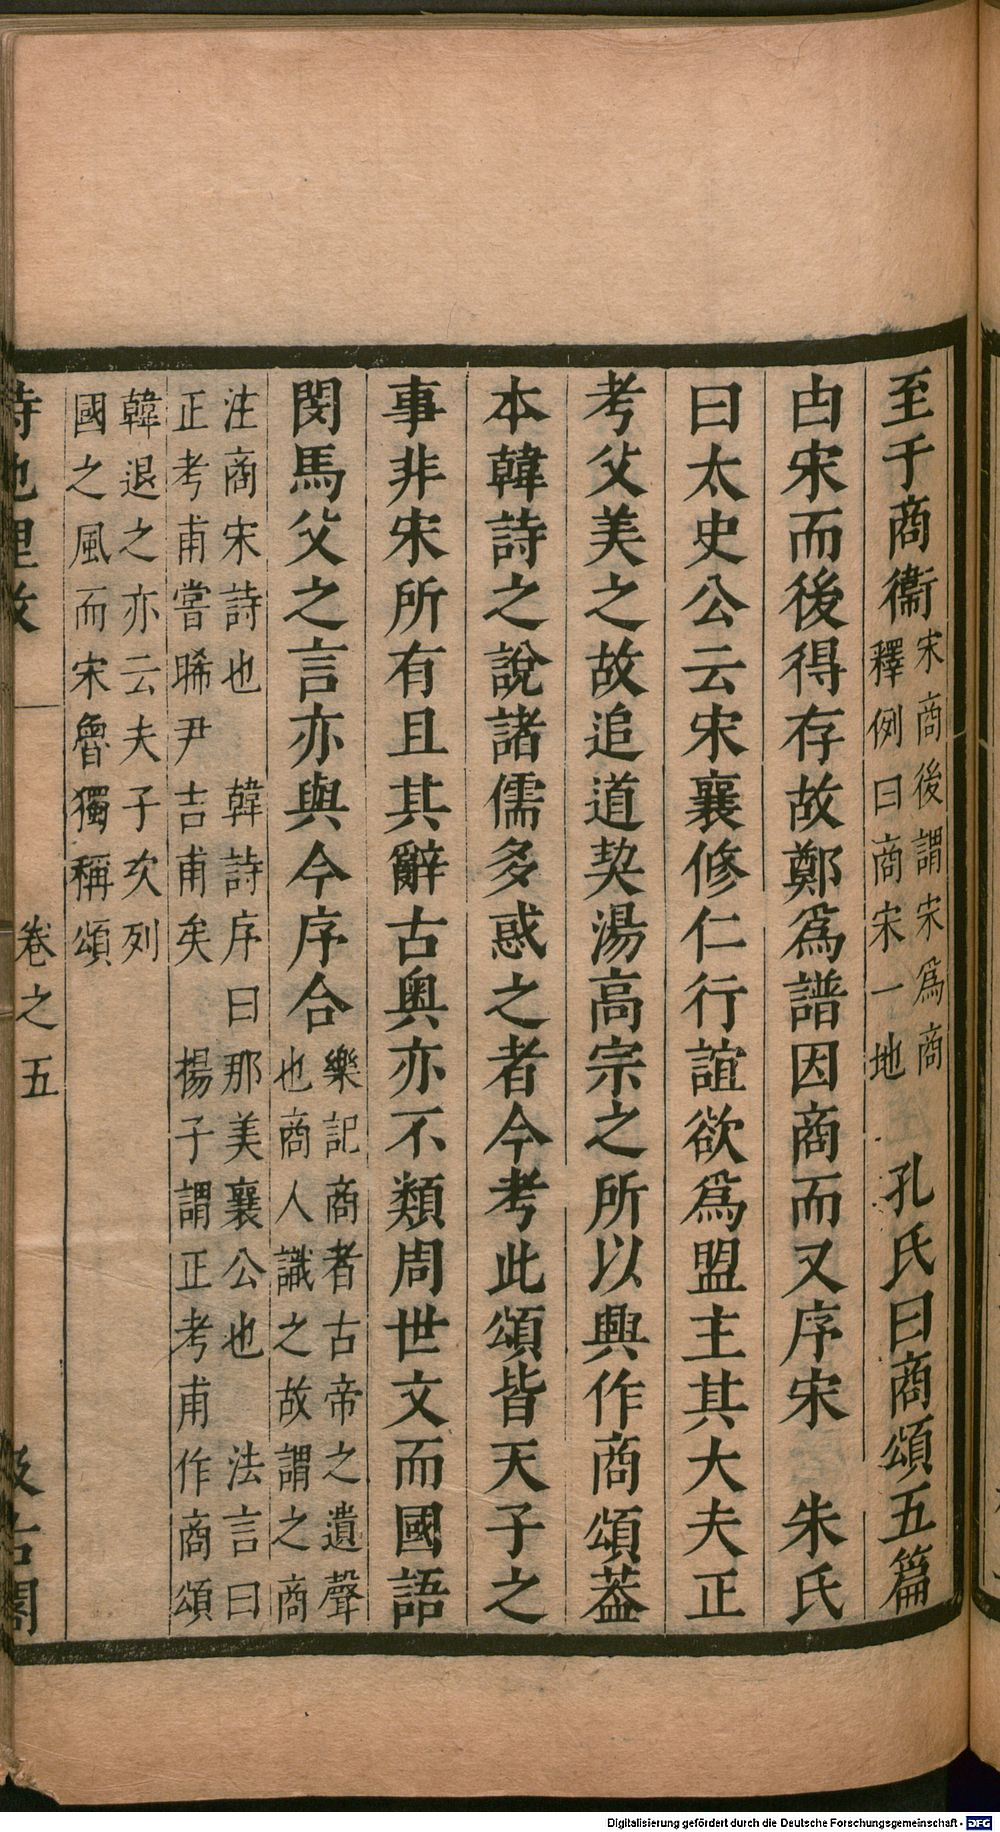 至于商衞宋商後謂宋爲商釋例曰商宋一地　孔氏曰商頌五篇
由宋而後得存故鄭爲譜因商而又序宋　朱氏
曰太史公云宋襄修仁行誼欲爲盟主其大夫正
考父美之故追道契湯高宗之所以興作商頌葢
本韓詩之說諸儒多惑之者今考此頌皆天子之
事非宋所有且其辭古奥亦不類周世文而國語
閔馬父之言亦與今序合樂記商者古帝之遺聲也商人識之故謂之商
注商宋詩也　韓詩序曰那美襄公也　法言曰
正考甫嘗晞尹吉甫矣　揚子謂正考甫作商頌
韓退之亦云夫子次列
國之風而宋魯獨稱頌
詩地理攷　卷之五　汲古閣
Digitalisierung gefördert durch die Deutsche Forschungsgemeinschaft - DFG